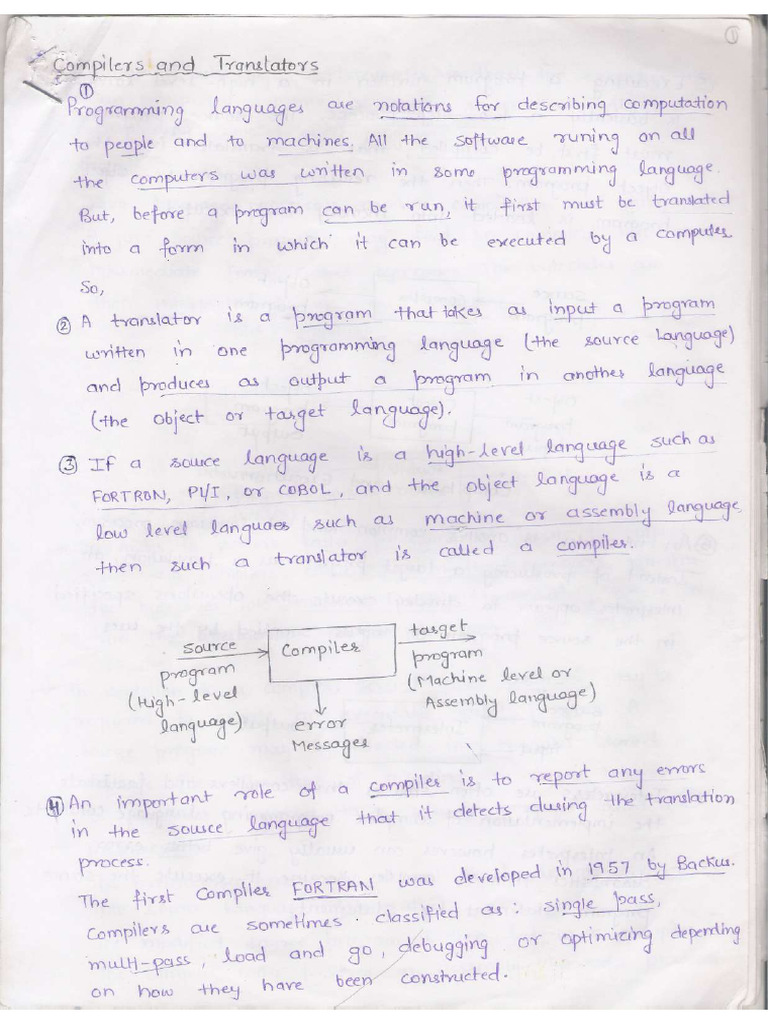 ①
Compilers and Translators
①
Programming languages are notations for describing computation
to people and to machines. All the software runing on all
the computers was written in some programming language.
But, before a program can be run, it first must be translated
into a form in which it can be executed by a computer
So,
② A translator is a program that takes as input a program
written in one programming language (the source Language)
and produces as output a program in another language
(the object or target language).
③ If a source language is a high-level language such as
FORTRON, PL/I, or COBOL, and the object language is a
low level languaes such as machine or assembly language,
then such a translator is called a compiler.
source
program
(High-level
language)
Compiler
error
Messages
target
program
(Machine level or
Assembly language)
④ An important role of a compiler is to report any errors
in the source language that it detects during the translation
process.
The first Complier FORTRAN was developed in 1957 by Backus.
Compilers are sometimes classified as: single pass,
multi-pass, load and go, debugging or optimizing depending
on how they have been constructed.